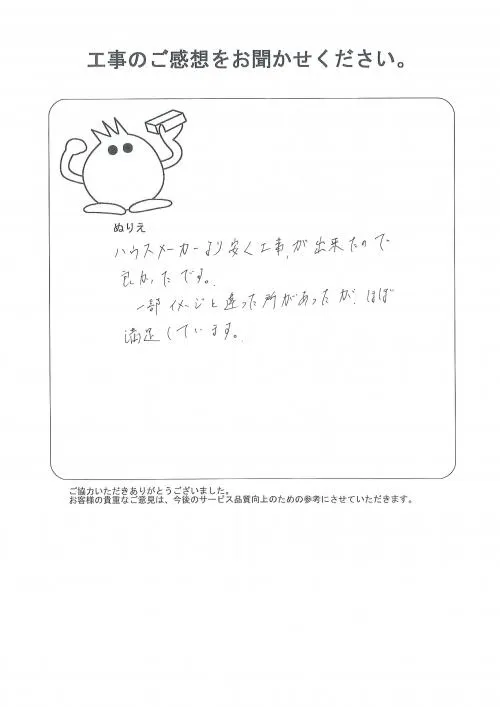 工事のご感想をお聞かせください。
ぬりえ
ハウスメーカーより安く工事が出来たので
良かったです。
一部イメージと違った所があったが、ほぼ
満足しています。
ご協力いただきありがとうございました。
お客様の貴重なご意見は、今後のサービス品質向上のための参考にさせていただきます。